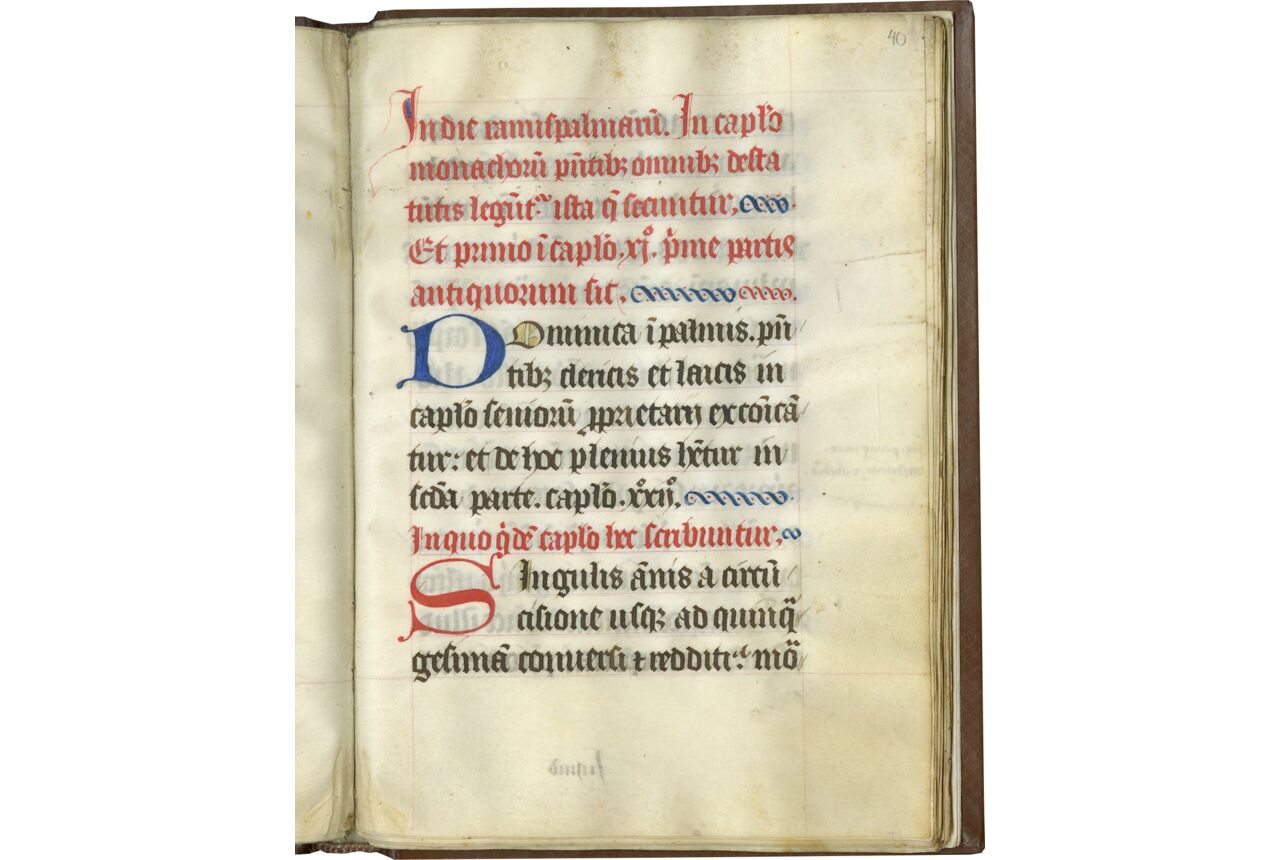 40
In die ramispalmarū. In capłō
monachorū pn̄tibꝫ omnibꝫ de sta
tutis legūt᷑ ista q̄ secuntur,
Et primo ī capłō.xjº. pͥme partis
antiquorum sic,
DOminica ī palmis. pn̄
tibꝫ clericis et laicis in
capłō seniorū ꝓprietarij excōīcā
tur: et de hoc plenius hētur in
scđa parte. capłō.xxijº.
In quo qͥdē capłō hec scribuntur,
SIngulis ānis a circū
cisione usqꝫ ad quinqᷓ
gesimā conuersi ⁊ redditi